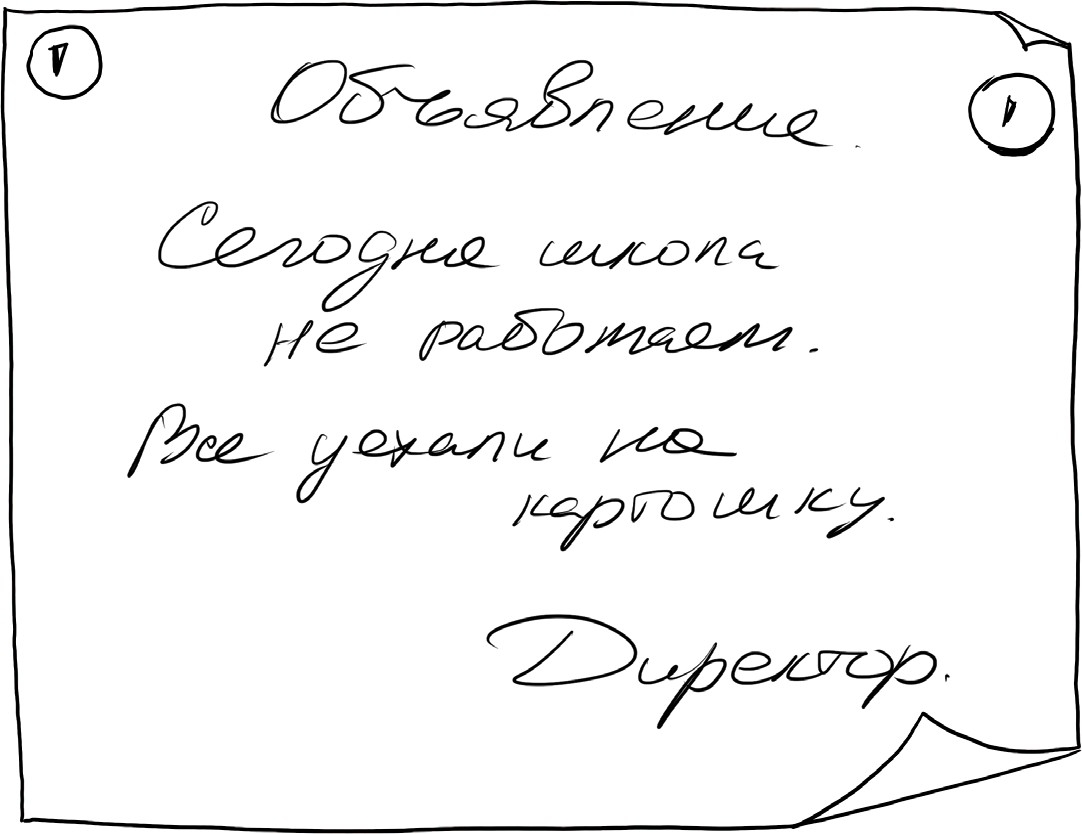 Объявление.
Сегодня школа
не работает.
Все уехали на
картошку.
Директор.